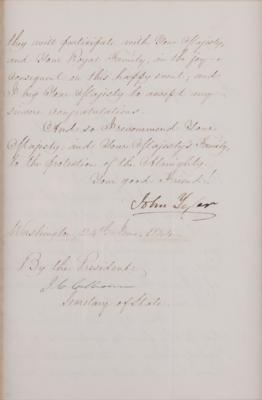 they will participate with Your Majesty,
and Your Royal Family, in the joy
consequent on this happy event; and
I beg Your Majesty to accept my
sincere congratulations.
And so I recommend Your
Majesty, and Your Majesty's Family,
to the protection of the Almighty.
Your good Friend!
John Tyler
Washington, 24th June, 1844.
By the President:
J. C. Calhoun
Secretary of State.